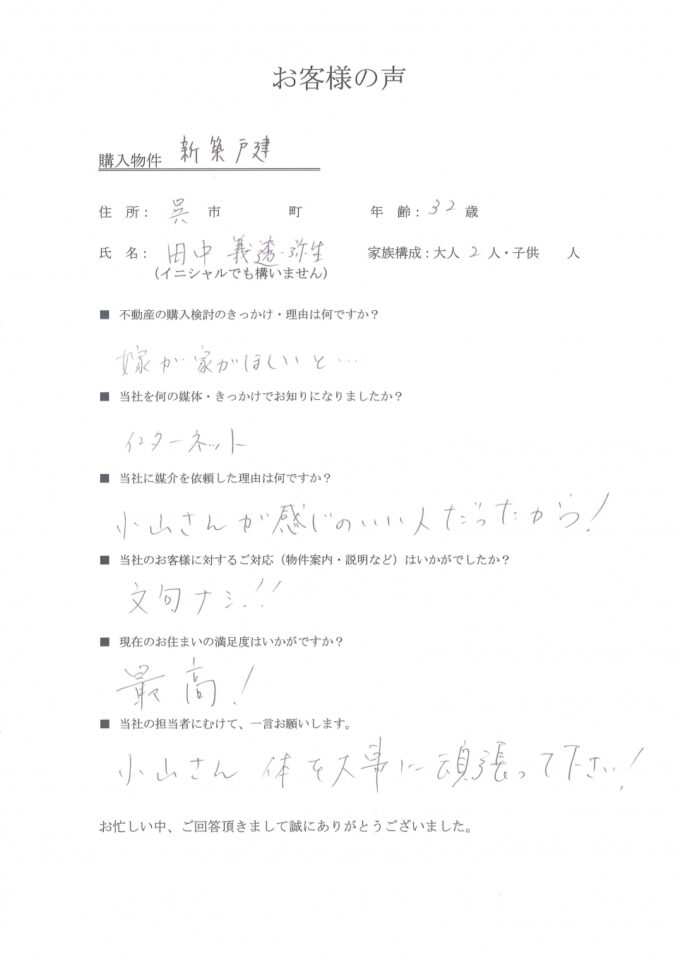 お客様の声
購入物件 新築戸建
住 所： 呉 市 町 年 齢：32歳
氏 名： 田中 義透・弥生 家族構成：大人 2 人・子供 人
（イニシャルでも構いません）
■ 不動産の購入検討のきっかけ・理由は何ですか？
嫁が家がほしいと‥‥
■ 当社を何の媒体・きっかけでお知りになりましたか？
インターネット
■ 当社に媒介を依頼した理由は何ですか？
小山さんが感じのいい人だったから！
■ 当社のお客様に対するご対応（物件案内・説明など）はいかがでしたか？
文句ナシ！！
■ 現在のお住まいの満足度はいかがですか？
最高！
■ 当社の担当者にむけて、一言お願いします。
小山さん 体を大事に頑張って下さい！
お忙しい中、ご回答頂きまして誠にありがとうございました。